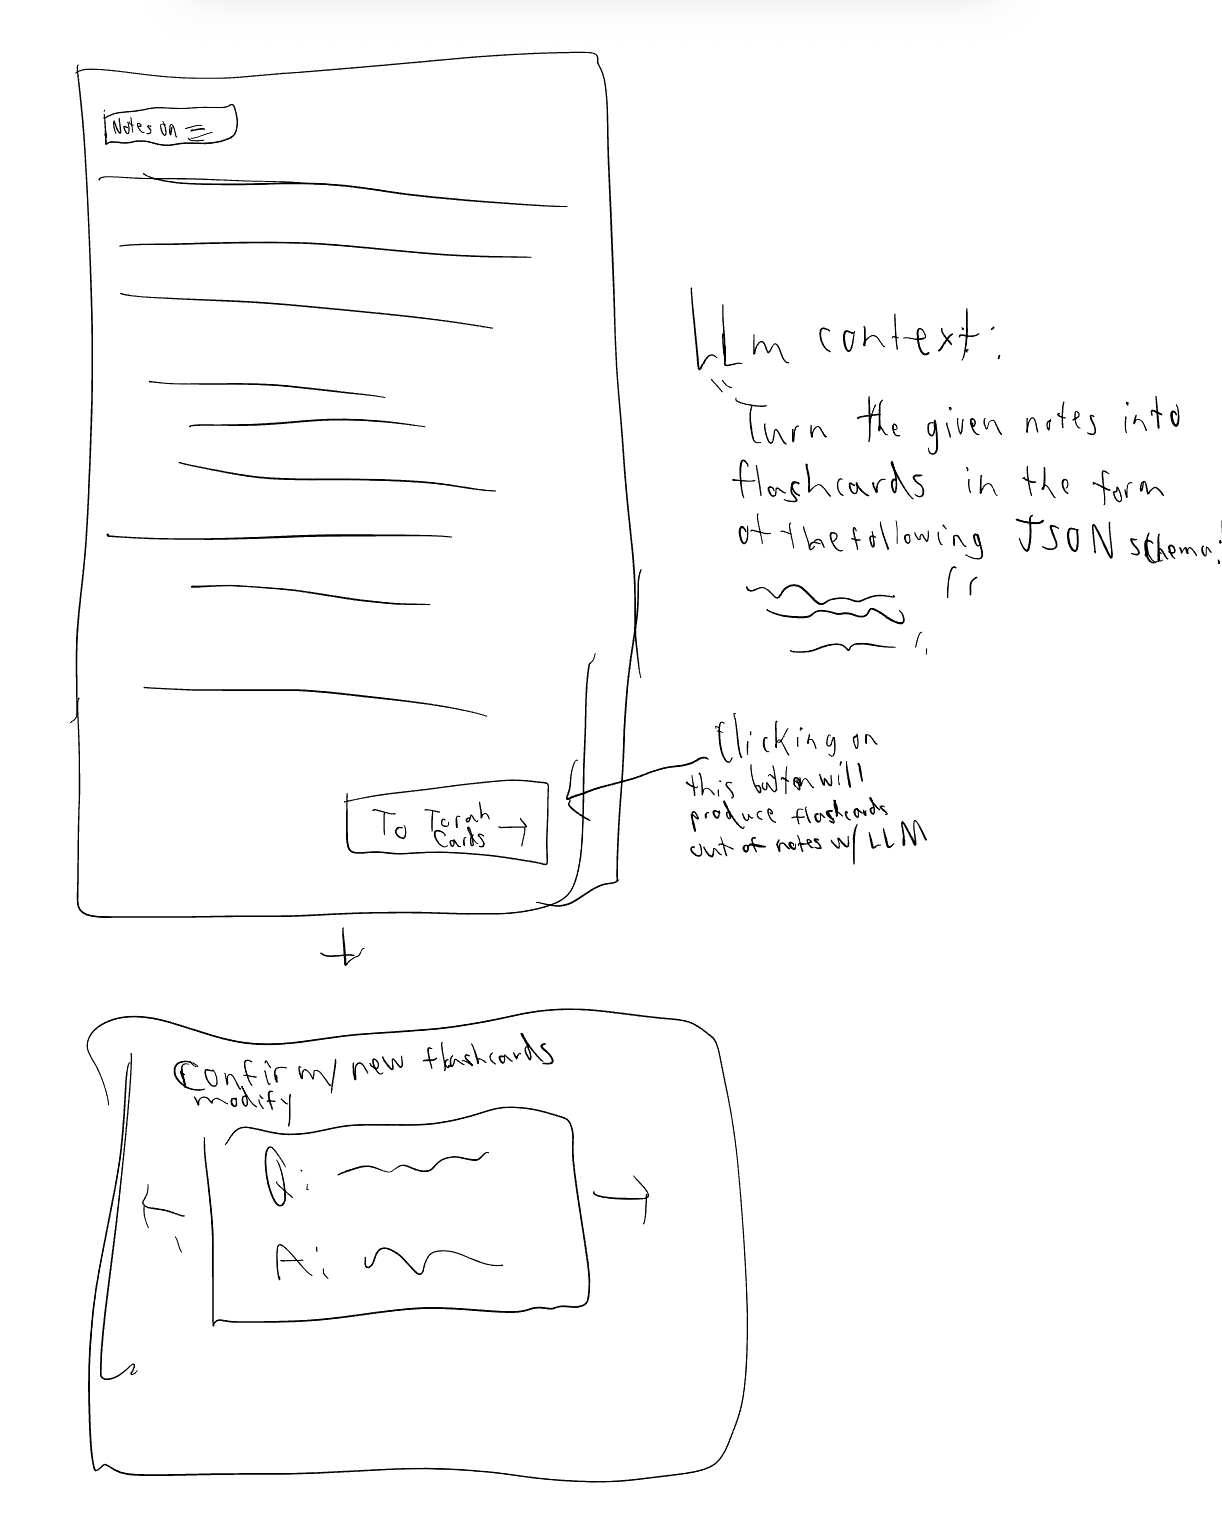 Notes on
LLm context:
"Turn the given notes into
flashcards in the form
of the following JSON schema:
"
To Torah
Cards →
Clicking on
this button will
produce flashcards
out of notes w/ LLM
Confirm/new flashcards
modify
Q:
A: